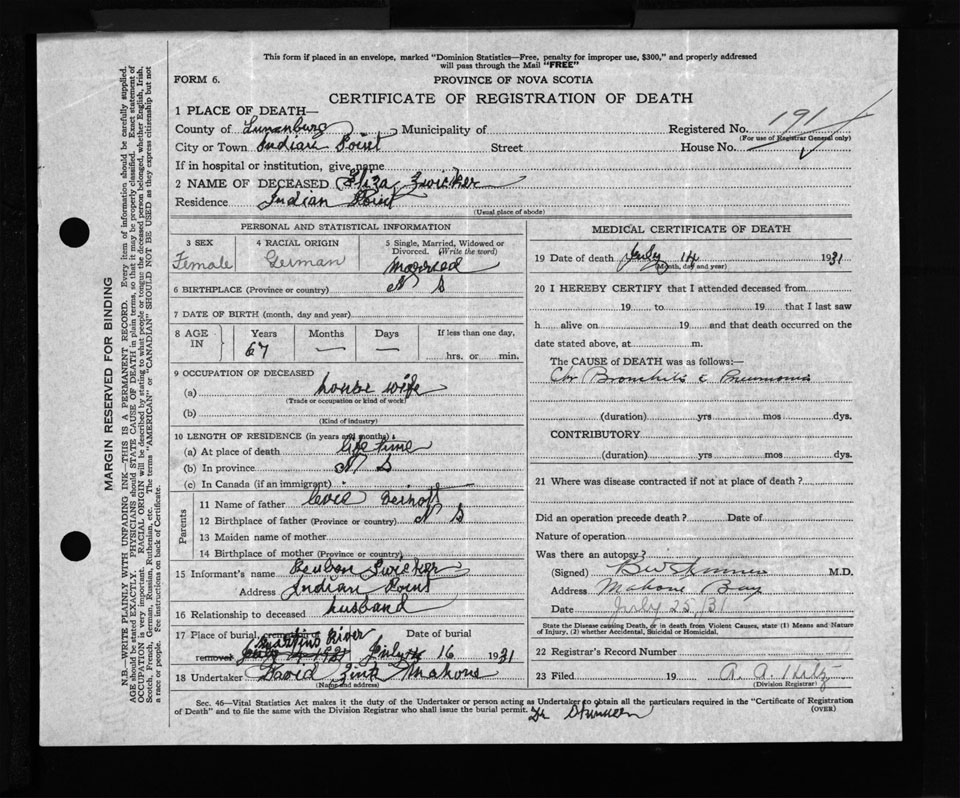 This form if placed in an envelope, marked "Dominion Statistics—Free, penalty for improper use, $300," and properly addressed
will pass through the Mail "FREE"
FORM 6.
PROVINCE OF NOVA SCOTIA
CERTIFICATE OF REGISTRATION OF DEATH
1 PLACE OF DEATH—
County of Lunenburg Municipality of Registered No. 191
(For use of Registrar General only)
City or Town Indian Point Street House No.
If in hospital or institution, give name
2 NAME OF DECEASED Eliza Zwicker
Residence Indian Point
(Usual place of abode)
PERSONAL AND STATISTICAL INFORMATION
3 SEX 4 RACIAL ORIGIN 5 Single, Married, Widowed or
Divorced. (Write the word)
Female German Married
6 BIRTHPLACE (Province or country) N S
7 DATE OF BIRTH (month, day and year)
8 AGE IN Years Months Days If less than one day,
67 — — hrs. or min.
9 OCCUPATION OF DECEASED
(a) house wife
(Trade or occupation or kind of work)
(b)
(Kind of industry)
10 LENGTH OF RESIDENCE (in years and months)
(a) At place of death life time
(b) In province N S
(c) In Canada (if an immigrant)
Parents
11 Name of father
12 Birthplace of father (Province or country) N S
13 Maiden name of mother
14 Birthplace of mother (Province or country)
15 Informant's name Reuben Zwicker
Address Indian Point
16 Relationship to deceased husband
17 Place of burial, cremation or Martins River Date of burial
removal July 16 1931
18 Undertaker David Zink Mahone
(Name and address)
MEDICAL CERTIFICATE OF DEATH
19 Date of death July 14 1931
(Month, day and year)
20 I HEREBY CERTIFY that I attended deceased from
19 to 19 that I last saw
h alive on 19 and that death occurred on the
date stated above, at m.
The CAUSE of DEATH was as follows:—
Chr Bronchitis & Pneumonia
(duration) yrs mos dys.
CONTRIBUTORY
(duration) yrs mos dys.
21 Where was disease contracted if not at place of death?
Did an operation precede death? Date of
Nature of operation
Was there an autopsy?
(Signed) M.D.
Address Mahone Bay
Date July 25 31
State the Disease causing Death, or in death from Violent Causes, state (1) Means and Nature
of Injury, (2) whether Accidental, Suicidal or Homicidal.
22 Registrar's Record Number
23 Filed 19
(Division Registrar)
Sec. 46—Vital Statistics Act makes it the duty of the Undertaker or person acting as Undertaker to obtain all the particulars required in the "Certificate of Registration
of Death" and to file the same with the Division Registrar who shall issue the burial permit.
(OVER)
MARGIN RESERVED FOR BINDING
N.B.—WRITE PLAINLY WITH UNFADING INK—THIS IS A PERMANENT RECORD. Every item of information should be carefully supplied.
AGE should be stated EXACTLY. PHYSICIANS should STATE CAUSE OF DEATH in plain terms, so that it may be properly classified. Exact statement of
OCCUPATION is very important. RACIAL ORIGIN will be described by stating to what people or tongue the deceased person belonged, whether English, Irish,
Scotch, French, German, Russian, Ruthenian, etc. The terms "AMERICAN" or "CANADIAN" SHOULD NOT BE USED as they express citizenship but not
a race or people. Fee instructions on back of Certificate.